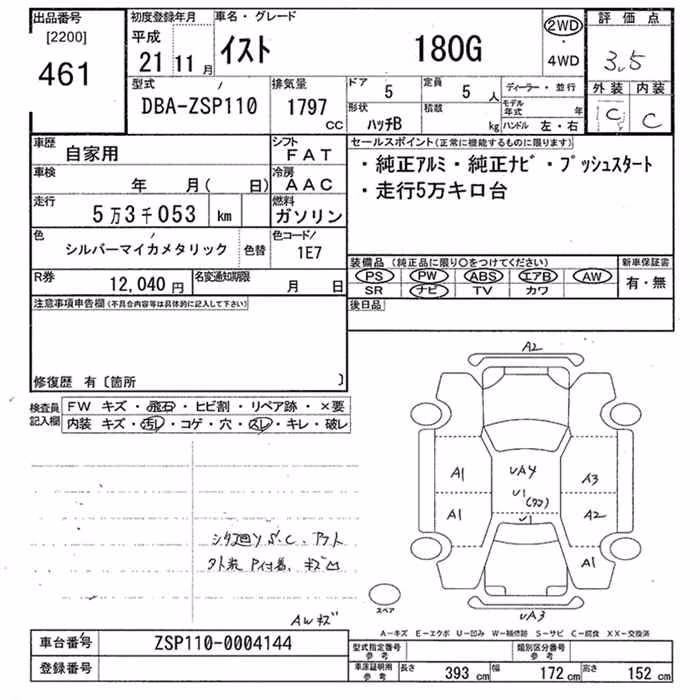 出品番号
[2200]
461
初度登録年月
平成
21 11 月
車名・グレード
イスト 180G
2WD
・
4WD
評価点
3.5
外装 内装
C C
型式
DBA-ZSP110
排気量
1797
CC
ドア
5
定員
5 人
形状
ハッチB
積載
kg
ディーラー・並行
モデル年式 年
ハンドル 左・右
車歴
自家用
シフト
FAT
車検
年 月( 日)
冷房
AAC
走行
5万3千053 km
燃料
ガソリン
色
シルバーマイカメタリック
色替
色コード/
1E7
R券
12,040 円
名変通知期限
月 日
セールスポイント(正常に機能するものに限ります)
・純正アルミ・純正ナビ・プッシュスタート
・走行5万キロ台
装備品(純正品に限り○をつけてください)
PS PW ABS エアB AW
SR ナビ TV カワ
新車保証書
有・無
後日品
注意事項申告欄(不具合内容等は具体的に記入して下さい)
修復歴 有〔箇所 〕
検査員記入欄
FW キズ・飛石・ヒビ割・リペア跡・×要
内装 キズ・汚レ・コゲ・穴・スレ・キレ・破レ
A2
A1
UA4
A3
U1
A1
U1
A2
A1
UA3
スペア
AWキズ
A-キズ E-エクボ U-凹み W-補修跡 S-サビ C-腐食 XX-交換済
車台番号
ZSP110-0004144
登録番号
型式指定番号
参考
類別区分番号
参考
車庫証明用
参考
長さ 393 cm 幅 172 cm 高さ 152 cm